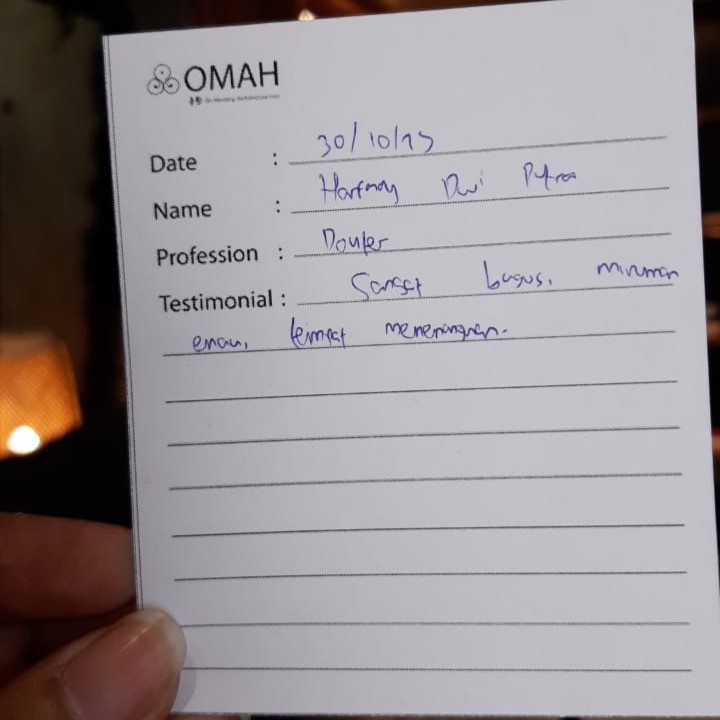 OMAH
Date : 30/10/19
Name : Dwi Putra
Profession : Dokter
Testimonial : Sangat bagus, minuman
enak, tempat menenangkan.